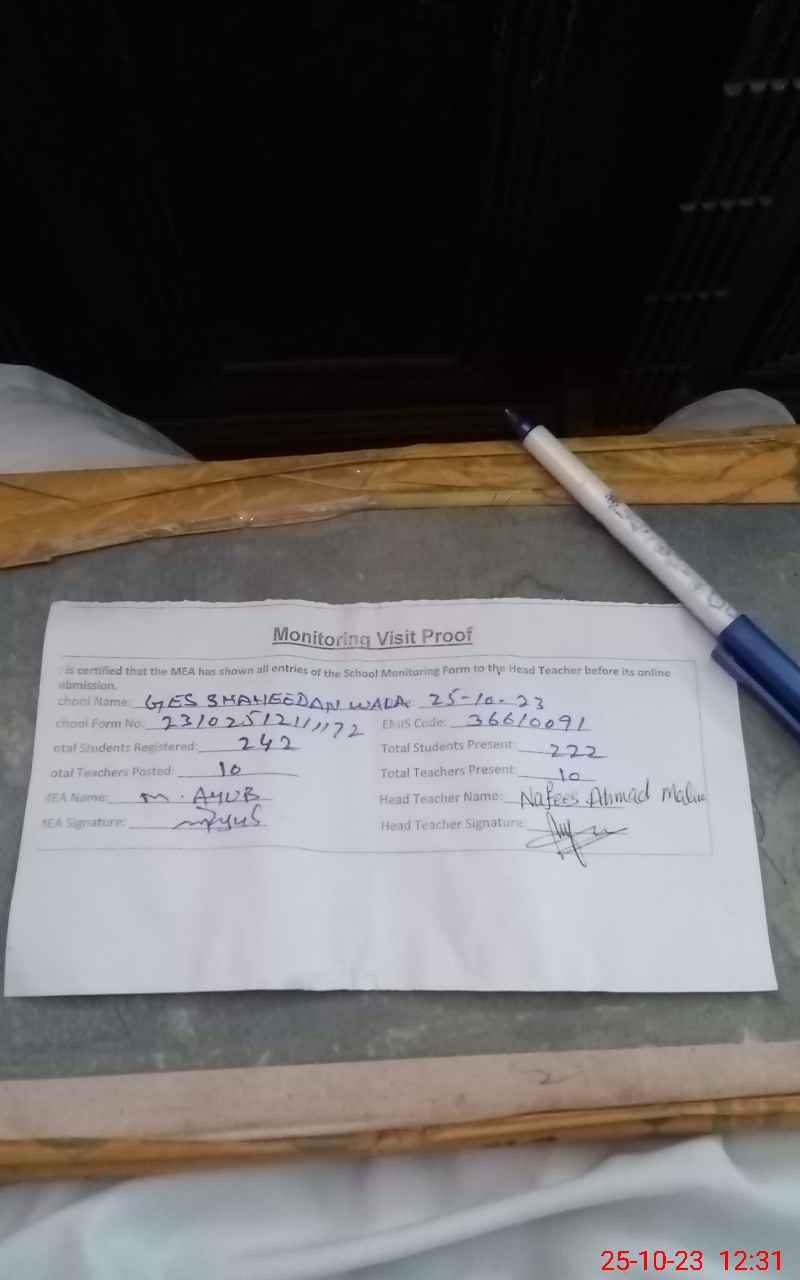 Monitoring Visit Proof
is certified that the MEA has shown all entries of the School Monitoring Form to the Head Teacher before its online
ubmission.
chool Name: GES SHAHEEDAN WALA 25-10-23
chool Form No: EMIS Code: 36610091
otal Students Registered: 242 Total Students Present: 222
otal Teachers Posted: 10 Total Teachers Present: 10
MEA Name: M. AYUB Head Teacher Name: Nafees Ahmad
MEA Signature: Head Teacher Signature:
25-10-23 12:31